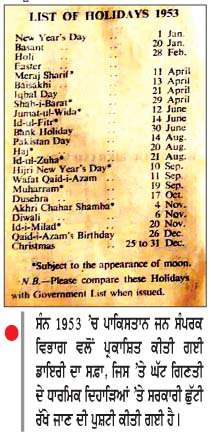 LIST OF HOLIDAYS 1953
New Year's Day 1 Jan.
Basant 20 Jan.
Holi 28 Feb.
Easter
Meraj Sharif* 11 April
Baisakhi 13 April
Iqbal Day 21 April
Shab-i-Barat* 29 April
Jumat-ul-Wida* 12 June
Id-ul-Fitr* 14 June
Bank Holiday 30 June
Pakistan Day 14 Aug.
Haj* 20 Aug.
Id-ul-Zuha* 21 Aug.
Hijri New Year's Day* 10 Sep.
Wafat Qaid-i-Azam 11 Sep.
Muharram* 19 Sep.
Dusehra 17 Oct.
Akhri Chahar Shamba* 4 Nov.
Diwali 6 Nov.
Id-i-Milad* 20 Nov.
Qaid-i-Azam's Birthday 26 Dec.
Christmas 25 to 31 Dec.
*Subject to the appearance of moon.
N.B.—Please compare these Holidays
with Government List when issued.
ਸੰਨ 1953 'ਚ ਪਾਕਿਸਤਾਨ ਜਨ ਸੰਪਰਕ
ਵਿਭਾਗ ਵਲੋਂ ਪ੍ਰਕਾਸ਼ਿਤ ਕੀਤੀ ਗਈ
ਡਾਇਰੀ ਦਾ ਸਫ਼ਾ, ਜਿਸ 'ਤੇ ਘੱਟ ਗਿਣਤੀ
ਦੇ ਧਾਰਮਿਕ ਦਿਹਾੜਿਆਂ 'ਤੇ ਸਰਕਾਰੀ ਛੁੱਟੀ
ਰੱਖੇ ਜਾਣ ਦੀ ਪੁਸ਼ਟੀ ਕੀਤੀ ਗਈ ਹੈ।